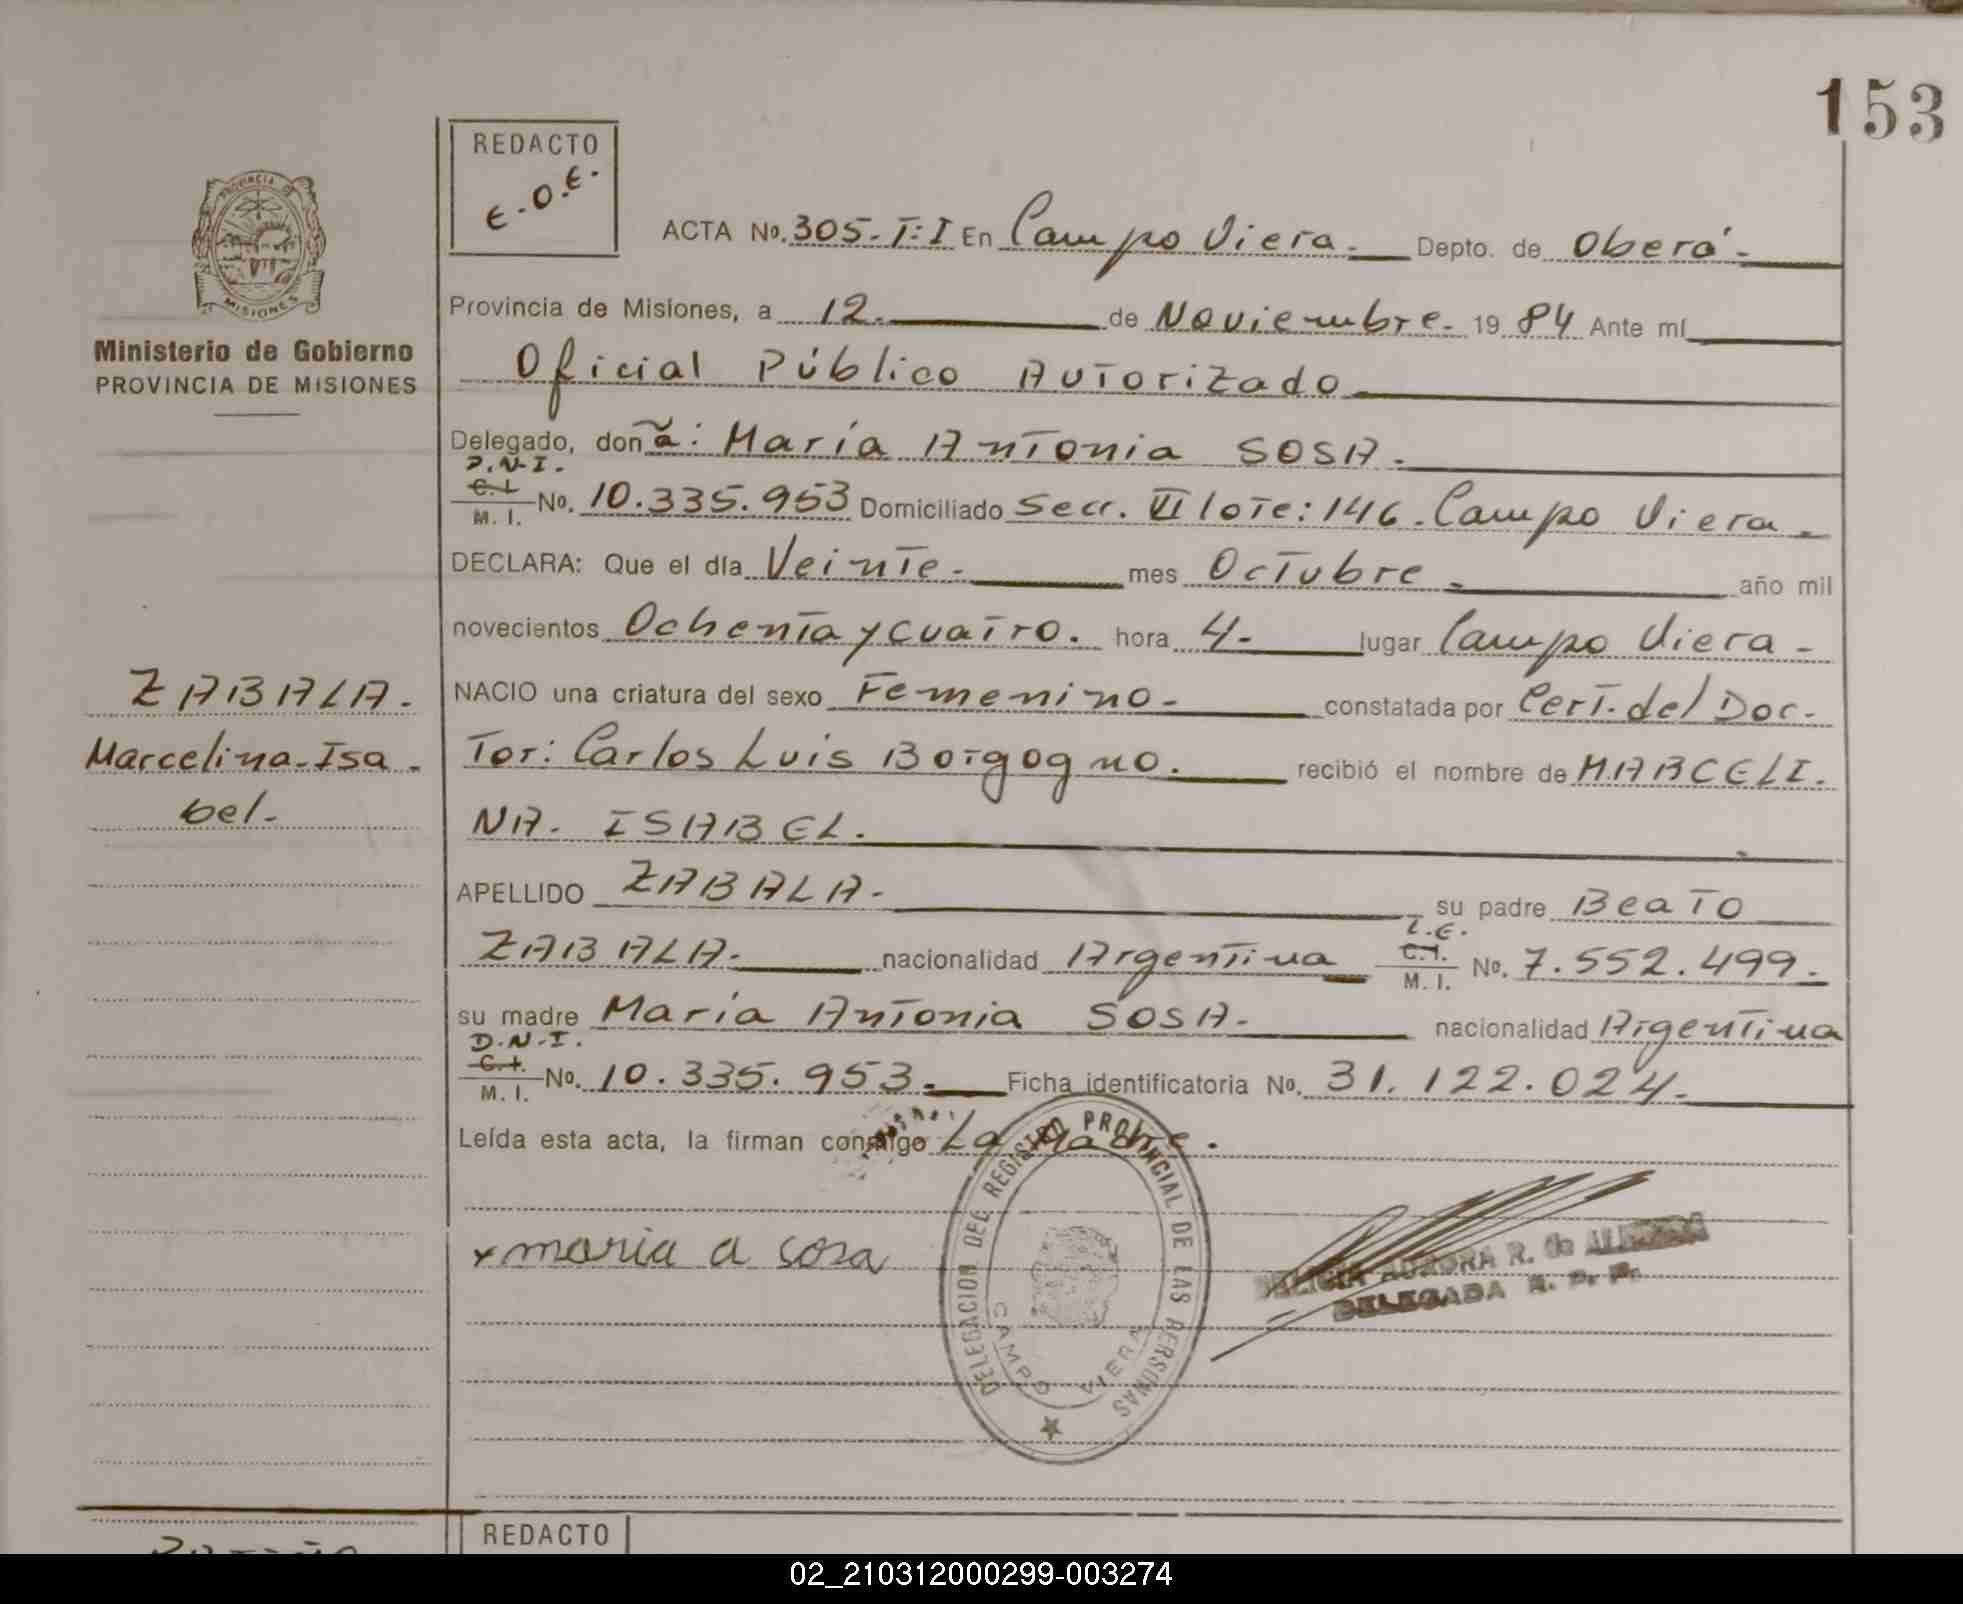 153
REDACTO
E.O.E.
PROVINCIA DE
MISIONES
Ministerio de Gobierno
PROVINCIA DE MISIONES
ACTA No. 305-T:I En Campo Viera. Depto. de Oberá.
Provincia de Misiones, a 12. de Noviembre. 19 84 Ante mí
Oficial Público Autorizado
Delegado, don ña: María Antonia SOSA.
D.N.I.
C.I.
M. I. No. 10.335.953 Domiciliado Secc. VI lote: 146. Campo Viera.
DECLARA: Que el día Veinte. mes Octubre. año mil
novecientos Ochenta y cuatro. hora 4. lugar Campo Viera.
NACIO una criatura del sexo Femenino. constatada por Cert. del Doc-
tor: Carlos Luis Borgogno. recibió el nombre de MARCELI.
NA. ISABEL.
APELLIDO ZABALA. su padre Beato
ZABALA. nacionalidad Argentina L.E. C.I. M. I. No. 7.552.499.
su madre María Antonia SOSA. nacionalidad Argentina
D.N.I.
C.I.
M. I. No. 10.335.953. Ficha identificatoria No. 31.122.024.
Leída esta acta, la firman conmigo La Madre.
x maria a sosa
ZABALA.
Marcelina-Isa-
bel.
DELEGACION DEL REGISTRO PROVINCIAL DE LAS PERSONAS
CAMPO VIERA
AURORA R. de
DELEGADA R. P. P.
REDACTO
02_210312000299-003274